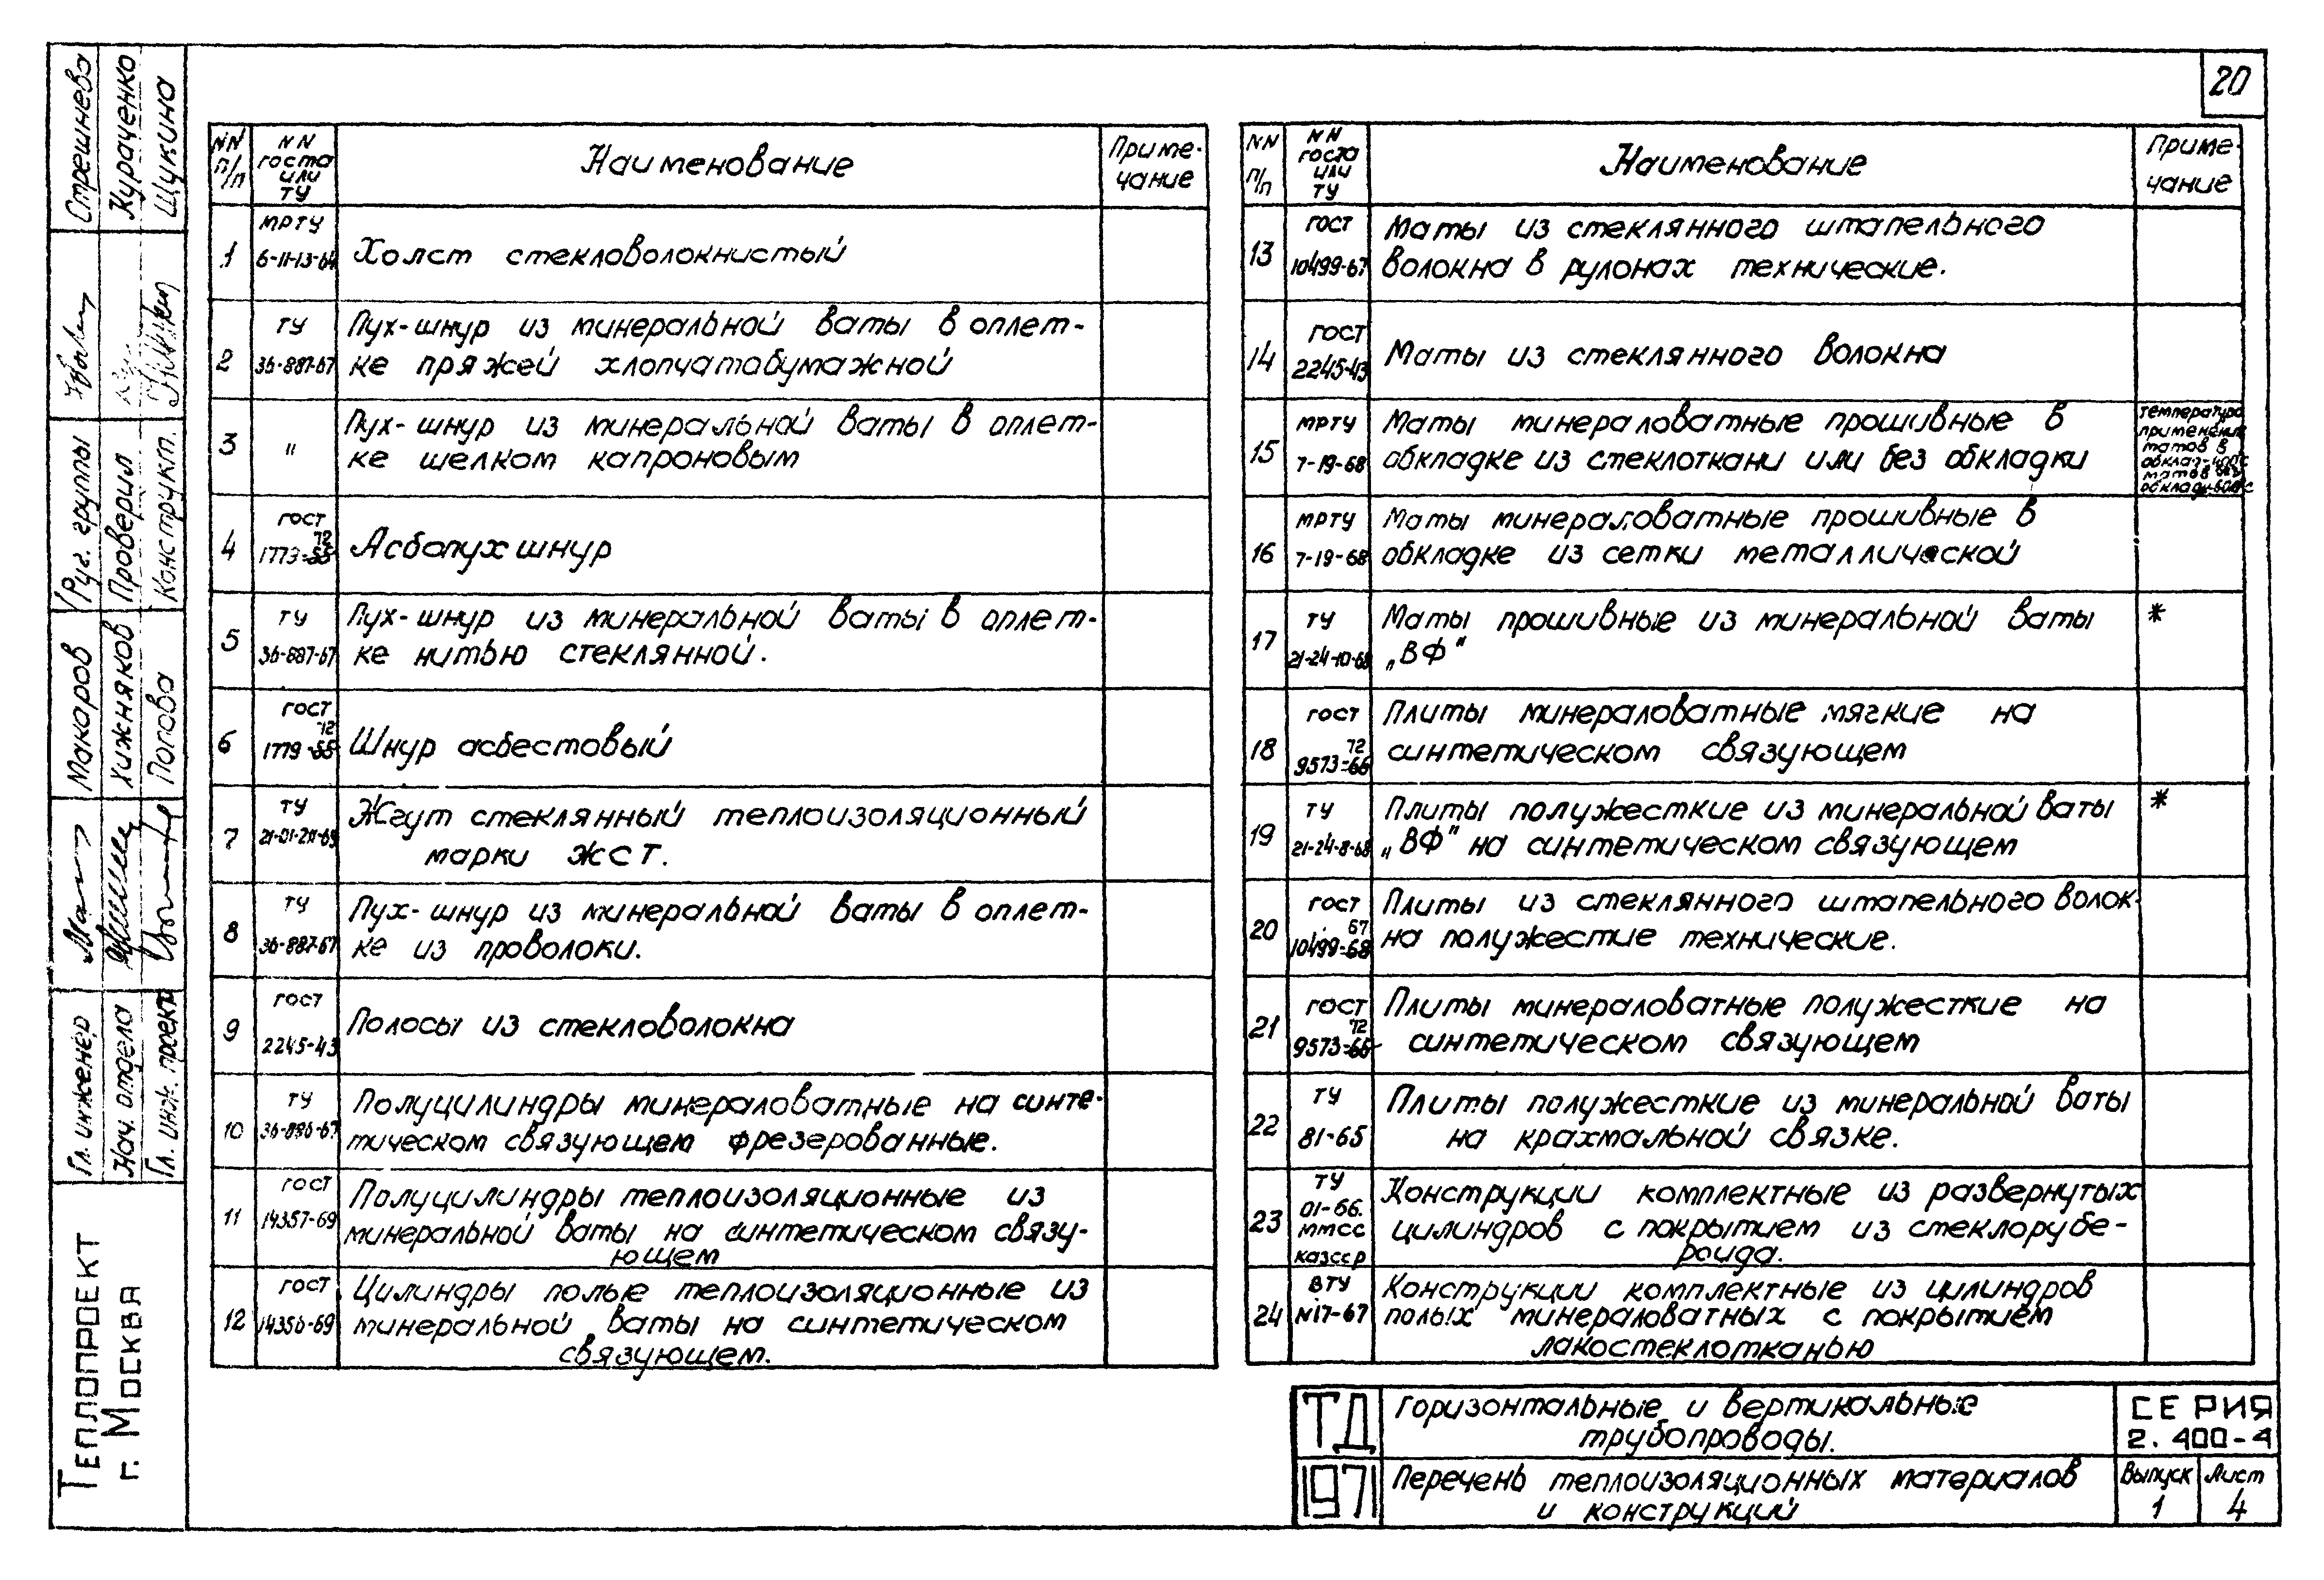 20
NN п/п
NN госта или ТУ
Наименование
Приме-
чание
1
МРТУ
6-11-13-64
Холст стекловолокнистый
2
ТУ
36-887-67
Пух-шнур из минеральной ваты в оплет-
ке пряжей хлопчатобумажной
3
"
Пух-шнур из минеральной ваты в оплет-
ке шелком капроновым
4
ГОСТ
72
1779-55
Асбопухшнур
5
ТУ
36-887-67
Пух-шнур из минеральной ваты в оплет-
ке нитью стеклянной.
6
ГОСТ
72
1779-55
Шнур асбестовый
7
ТУ
Жгут стеклянный теплоизоляционный
марки ЖСТ.
8
ТУ
36-887-67
Пух-шнур из минеральной ваты в оплет-
ке из проволоки.
9
ГОСТ
2245-43
Полосы из стекловолокна
10
ТУ
36-886-67
Полуцилиндры минераловатные на синте-
тическом связующем фрезерованные.
11
ГОСТ
14357-69
Полуцилиндры теплоизоляционные из
минеральной ваты на синтетическом связу-
ющем
12
ГОСТ
14356-69
Цилиндры полые теплоизоляционные из
минеральной ваты на синтетическом
связующем.
NN п/п
NN госта или ТУ
Наименование
Приме-
чание
13
ГОСТ
10499-67
Маты из стеклянного штапельного
волокна в рулонах технические.
14
ГОСТ
2245-43
Маты из стеклянного волокна
15
МРТУ
7-19-68
Маты минераловатные прошивные в
обкладке из стеклоткани или без обкладки
температура
применения
матов в
обклад-400°С
матов без
обклад-600°С
16
МРТУ
7-19-68
Маты минераловатные прошивные в
обкладке из сетки металлической
17
ТУ
21-24-10-68
Маты прошивные из минеральной ваты
„ВФ"
*
18
ГОСТ
72
9573-66
Плиты минераловатные мягкие на
синтетическом связующем
19
ТУ
21-24-8-68
Плиты полужесткие из минеральной ваты
„ВФ" на синтетическом связующем
*
20
ГОСТ
67
10499-68
Плиты из стеклянного штапельного волок-
на полужестие технические.
21
ГОСТ
72
9573-66
Плиты минераловатные полужесткие на
синтетическом связующем
22
ТУ
81-65
Плиты полужесткие из минеральной ваты
на крахмальной связке.
23
ТУ
01-66.
ММСС
КАЗССР
Конструкции комплектные из развернутых
цилиндров с покрытием из стеклорубе-
роида.
24
ВТУ
N17-67
Конструкции комплектные из цилиндров
полых минераловатных с покрытием
лакостеклотканью
ТД
1971
Горизонтальные и вертикальные
трубопроводы.
СЕРИЯ
2.400-4
Перечень теплоизоляционных материалов
и конструкций
Выпуск
1
Лист
4
Теплопроект
г. Москва
Гл. инженер
Нач. отдела
Гл. инж. проекта
Макаров
Хижняков
Попова
Рук. группы
Проверил
Конструкт.
Стрешнева
Кураченко
Щукина